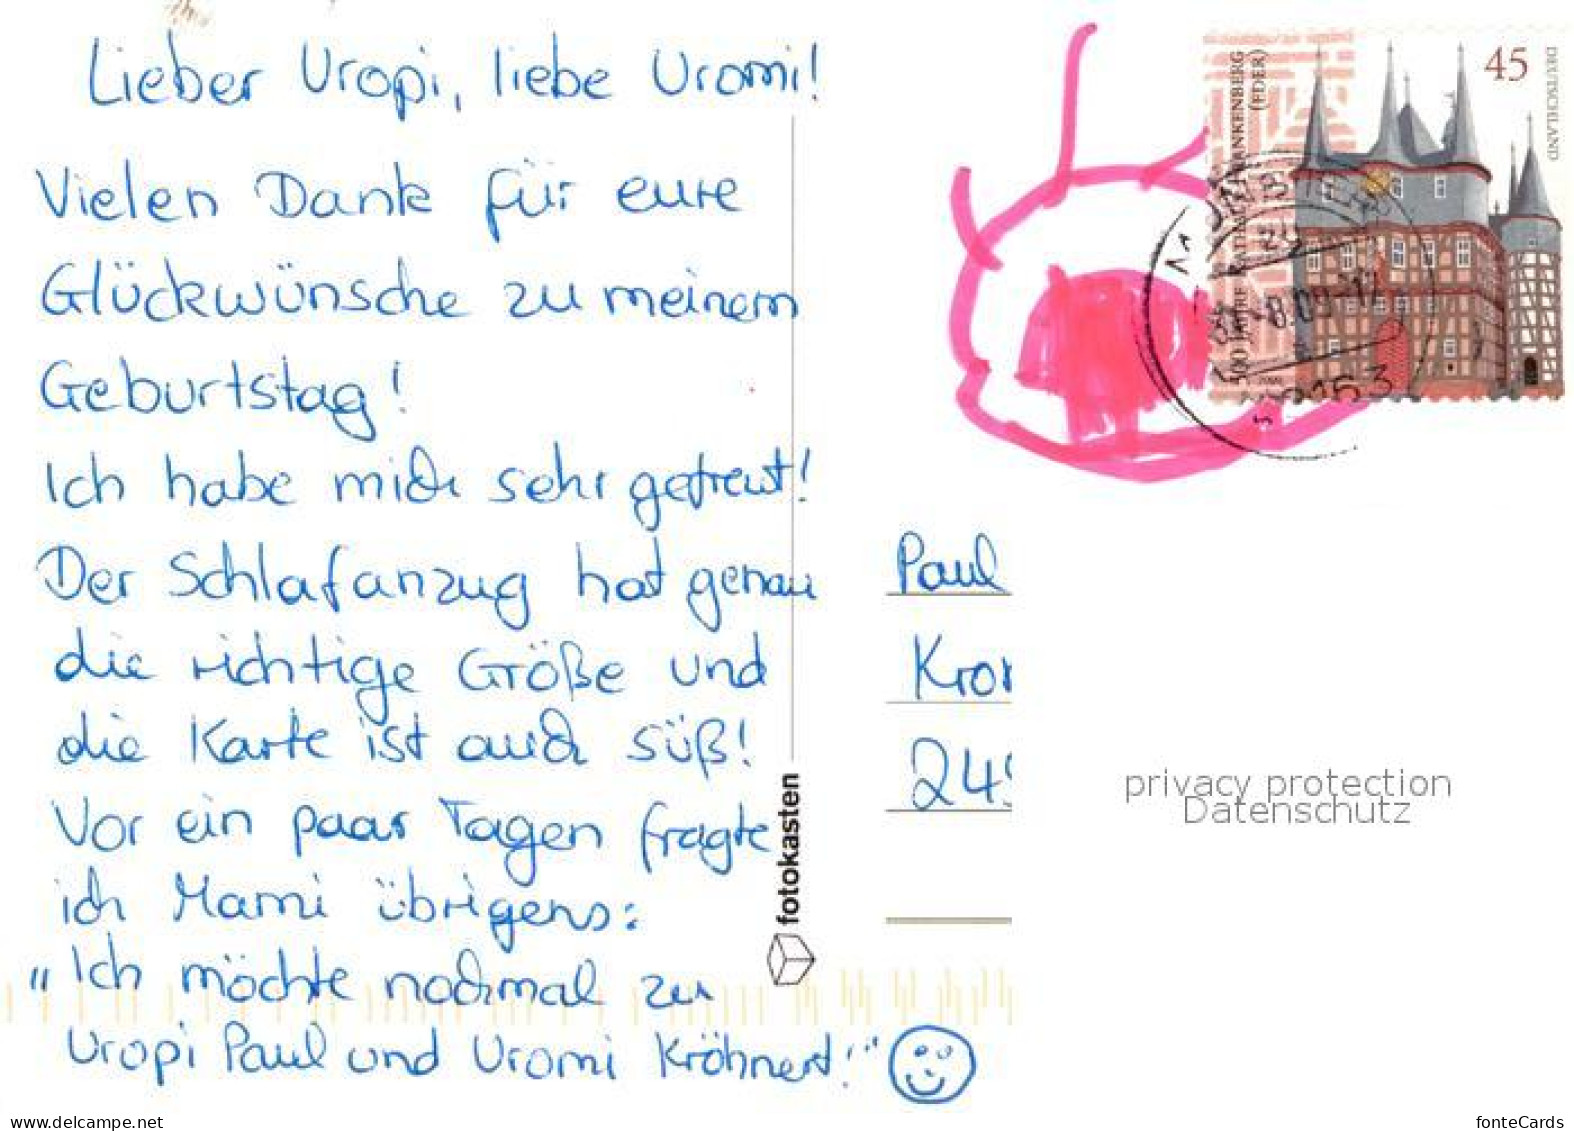 Lieber Uropi, liebe Uromi!
Vielen Dank für eure
Glückwünsche zu meinem
Geburtstag!
Ich habe mich sehr gefreut!
Der Schlafanzug hat genau
die richtige Größe und
die Karte ist auch süß!
Vor ein paar Tagen fragte
ich Mami übrigens:
"Ich möchte nochmal zu
Uropi Paul und Uromi Kröhnert!"
fotokasten
500 JAHRE RATHAUS FRANKENBERG
(EDER)
45
DEUTSCHLAND
Paul
Kro
24
privacy protection
Datenschutz
www.delcampe.net
fonteCards